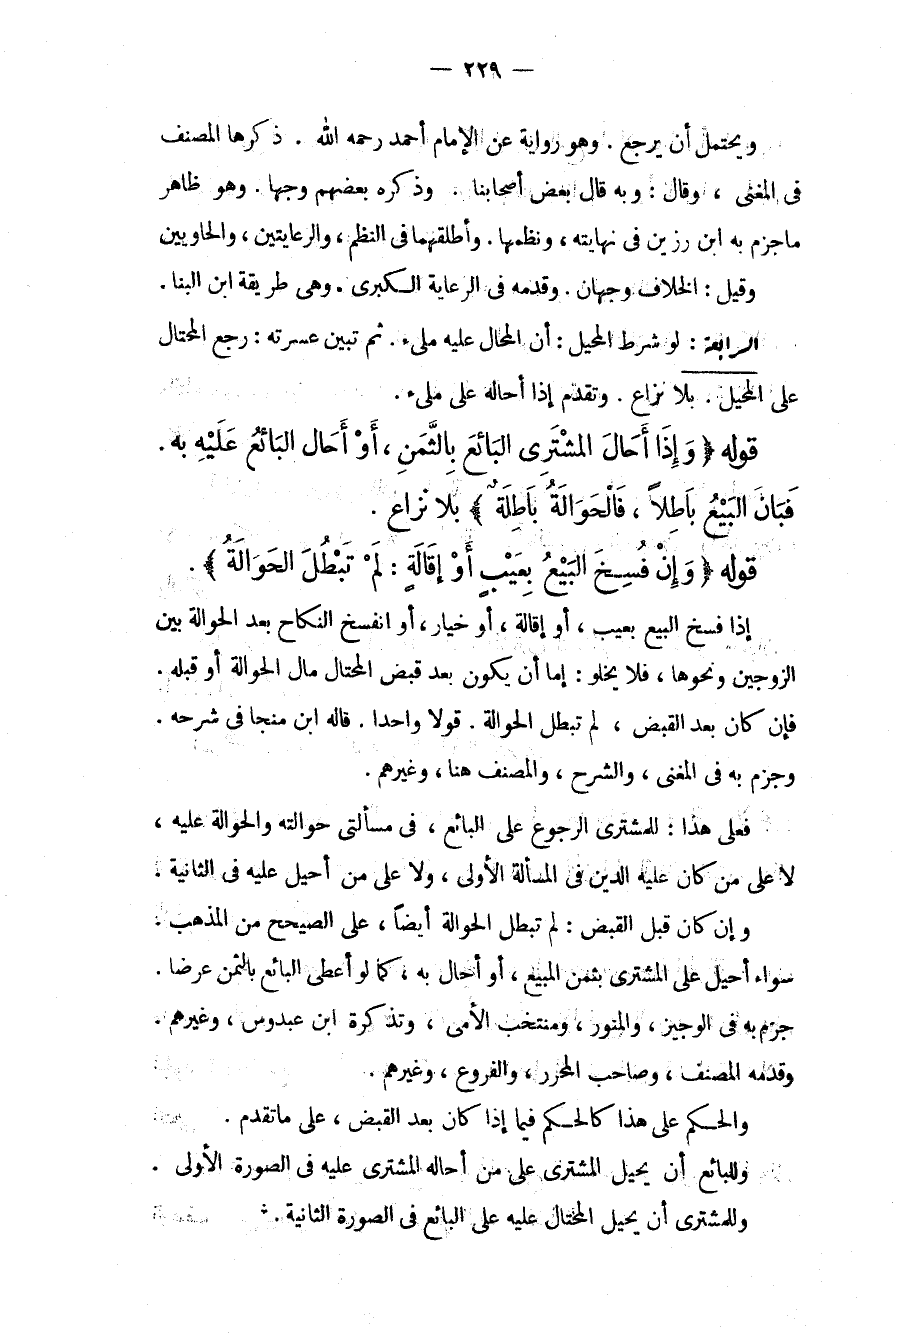 — ٢٢٩ —
ويحتمل أن يرجع . وهو رواية عن الإمام أحمد رحمه الله . ذكرها المصنف
فى المغنى ، وقال : وبه قال بعض أصحابنا . وذكره بعضهم وجها . وهو ظاهر
ماجزم به ابن رزين فى نهايته ، ونظمها . وأطلقهما فى النظم ، والرعايتين ، والحاويين
وقيل : الخلاف وجهان . وقدمه فى الرعاية الكبرى . وهى طريقة ابن البنا .
الرابعة : لو شرط المحيل : أن المحال عليه ملىء . ثم تبين عسرته : رجع المحتال
على المحيل . بلا نزاع . وتقدم إذا أحاله على ملىء .
قوله ﴿ وَإِذَا أَحَالَ المشْتَرِى البَائعَ بِالثَّمَنِ ، أَوْ أَحَال البَائعُ عَلَيْهِ به .
فَبَانَ البَيْعُ بَاطِلاً ، فَالْحَوَالَةُ بَاطِلَةٌ ﴾ بلا نزاع .
قوله ﴿ وَإِنْ فُسِخَ البَيْعُ بِعَيْبٍ أَوْ إقَالَةٍ : لَمْ تَبْطُلَ الحَوَالَةُ ﴾ .
إذا فسخ البيع بعيب ، أو إقالة ، أو خيار ، أو انفسخ النكاح بعد الحوالة بين
الزوجين ونحوها ، فلا يخلو : إما أن يكون بعد قبض المحتال مال الحوالة أو قبله .
فإن كان بعد القبض ، لم تبطل الحوالة . قولا واحدا . قاله ابن منجا فى شرحه .
وجزم به فى المغنى ، والشرح ، والمصنف هنا ، وغيرهم .
فعلى هذا : للمشترى الرجوع على البائع ، فى مسألتى حوالته والحوالة عليه ،
لا على من كان عليه الدين فى المسألة الأولى ، ولا على من أحيل عليه فى الثانية .
وإن كان قبل القبض : لم تبطل الحوالة أيضاً ، على الصيحح من المذهب .
سواء أحيل على المشترى بثمن المبيع ، أو أحال به ، كما لو أعطى البائع بالثمن عرضا .
جزم به فى الوجيز ، والمنور ، ومنتخب الأمى ، وتذكرة ابن عبدوس ، وغيرهم .
وقدمه المصنف ، وصاحب المحرر ، والفروع ، وغيرهم .
والحكم على هذا كالحكم فيما إذا كان بعد القبض ، على ماتقدم .
وللبائع أن يحيل المشترى على من أحاله المشترى عليه فى الصورة الأولى .
وللمشترى أن يحيل المحتال عليه على البائع فى الصورة الثانية .